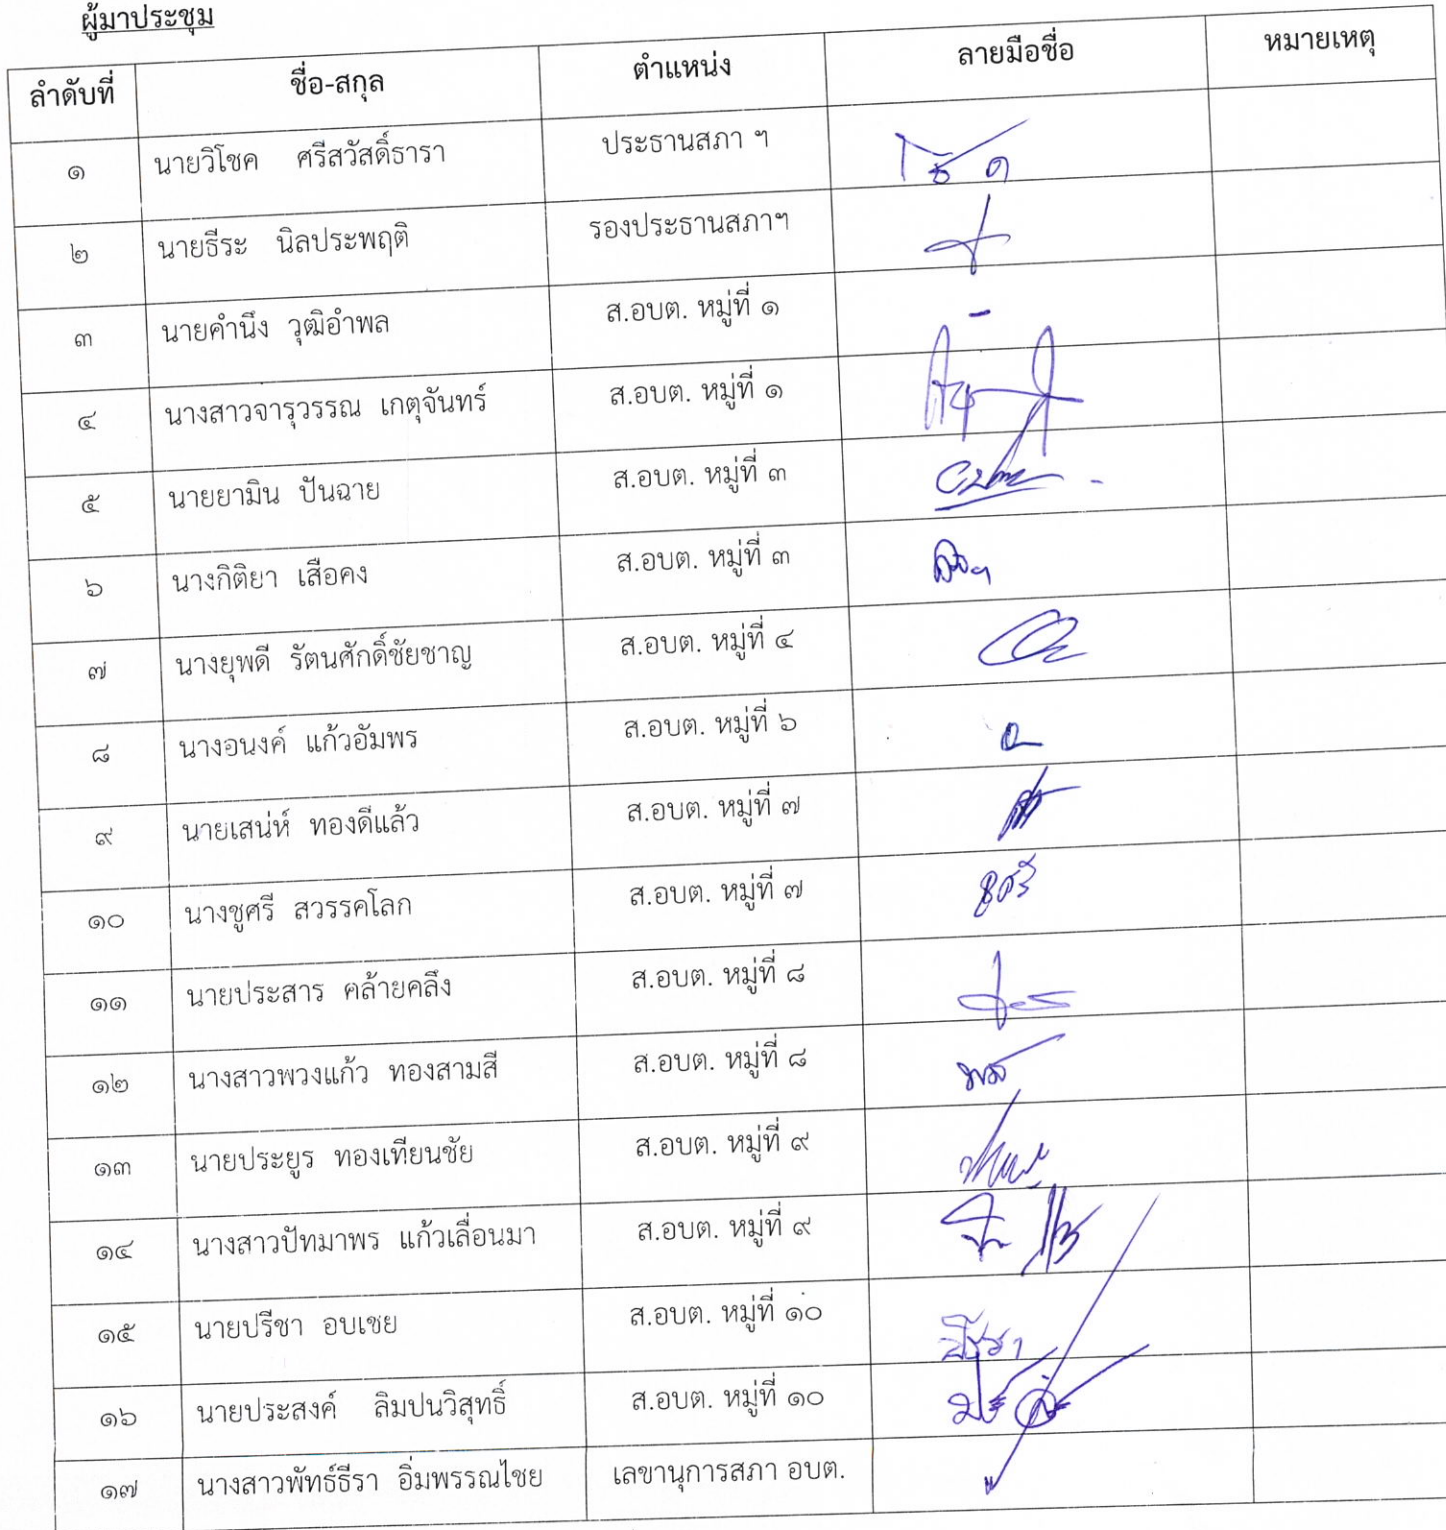 ผู้มาประชุม
ลำดับที่ ชื่อ-สกุล ตำแหน่ง ลายมือชื่อ หมายเหตุ
๑ นายวิโชค ศรีสวัสดิ์ธารา ประธานสภา ฯ โชค
๒ นายธีระ นิลประพฤติ รองประธานสภาฯ
๓ นายคำนึง วุฒิอำพล ส.อบต. หมู่ที่ ๑ -
๔ นางสาวจารุวรรณ เกตุจันทร์ ส.อบต. หมู่ที่ ๑
๕ นายยามิน ปันฉาย ส.อบต. หมู่ที่ ๓
๖ นางกิติยา เสือคง ส.อบต. หมู่ที่ ๓
๗ นางยุพดี รัตนศักดิ์ชัยชาญ ส.อบต. หมู่ที่ ๔
๘ นางอนงค์ แก้วอัมพร ส.อบต. หมู่ที่ ๖
๙ นายเสน่ห์ ทองดีแล้ว ส.อบต. หมู่ที่ ๗
๑๐ นางชูศรี สวรรคโลก ส.อบต. หมู่ที่ ๗ ชูศรี
๑๑ นายประสาร คล้ายคลึง ส.อบต. หมู่ที่ ๘
๑๒ นางสาวพวงแก้ว ทองสามสี ส.อบต. หมู่ที่ ๘
๑๓ นายประยูร ทองเทียนชัย ส.อบต. หมู่ที่ ๙
๑๔ นางสาวปัทมาพร แก้วเลื่อนมา ส.อบต. หมู่ที่ ๙
๑๕ นายปรีชา อบเชย ส.อบต. หมู่ที่ ๑๐ ปรีชา
๑๖ นายประสงค์ ลิมปนวิสุทธิ์ ส.อบต. หมู่ที่ ๑๐
๑๗ นางสาวพัทธ์ธีรา อิ่มพรรณไชย เลขานุการสภา อบต.